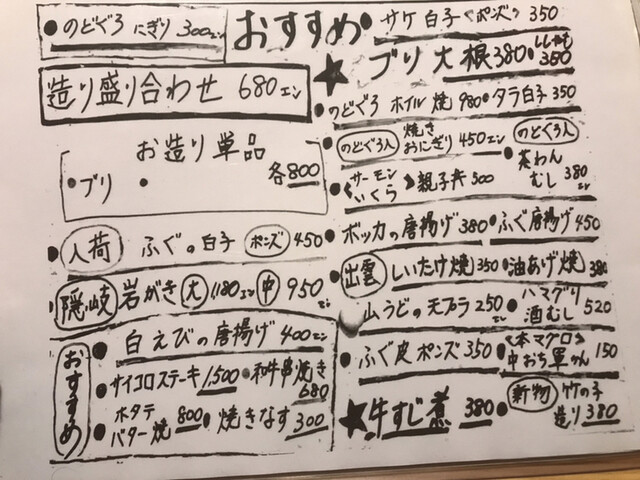 のどぐろ にぎり 300エン
造り盛り合わせ 680エン
お造り単品
各800
ブリ
入荷 ふぐの白子 ポンズ 450
隠岐 岩がき 大 1,180エン 中 950エン
おすすめ
白えびの唐揚げ 400エン
サイコロステーキ 1,500 和牛串焼き 680
ホタテバター焼 800 焼きなす 300
おすすめ
サケ白子<ポンズ> 350
ブリ大根 380 ししゃも 350
のどぐろ ホイル焼 980 タラ白子 350
のどぐろ入 焼きおにぎり 450エン
のどぐろ入 茶わんむし 380エン
<サーモンいくら>親子丼 500
ボッカの唐揚げ 380 ふぐ唐揚げ 450
出雲 しいたけ焼 350 油あげ焼 380
山うどの天プラ 250エン ハマグリ酒むし 520
ふぐ皮ポンズ 350 <本マグロ>中おち軍かん 150
★牛すじ煮 380 新物 竹の子造り 380